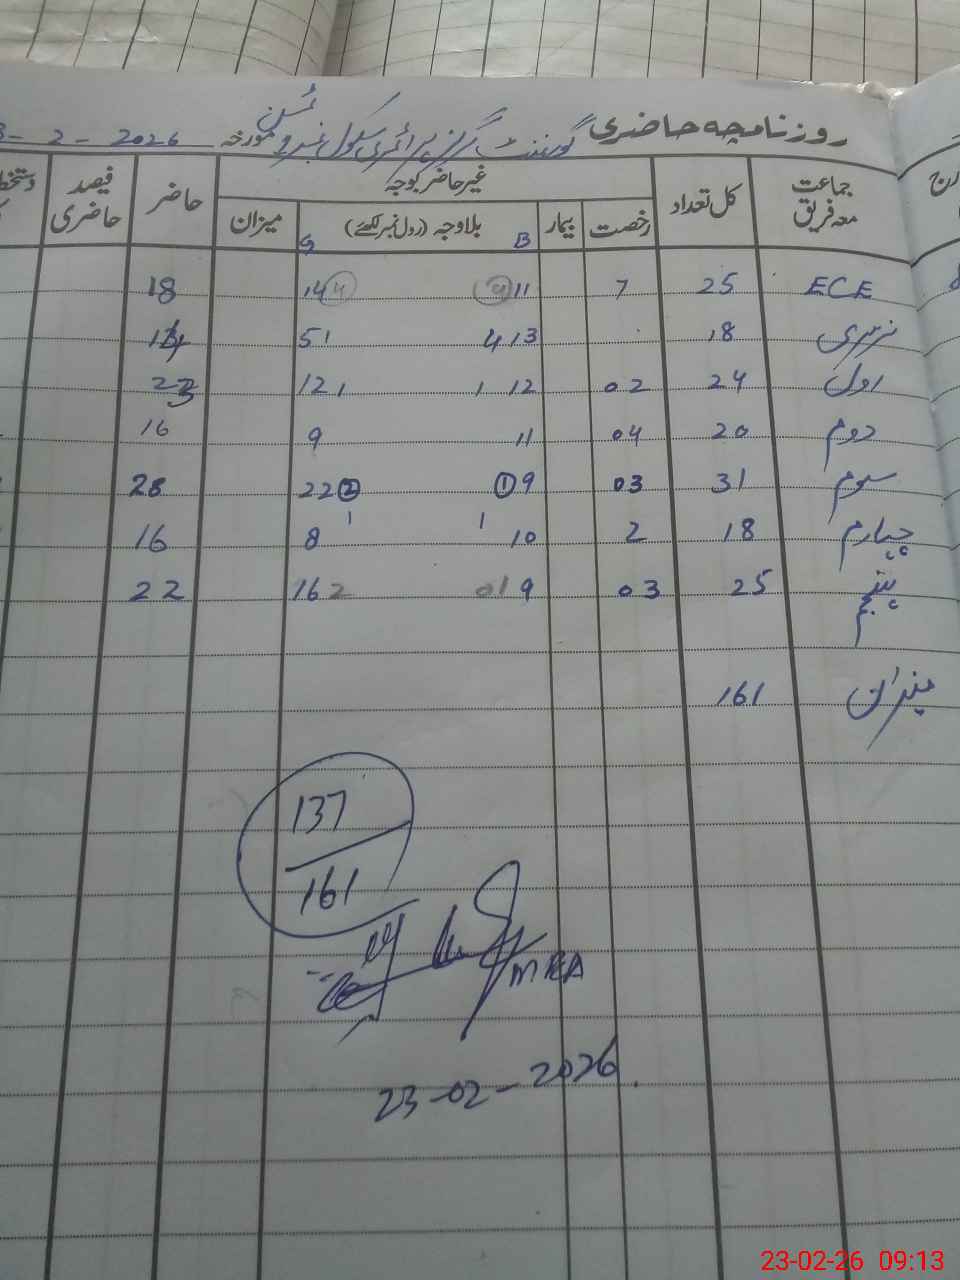 روزنامچہ حاضری گورنمنٹ گرلز پرائمری سکول نمبر مورخہ 3-2-2026
جماعت معہ فریق کل تعداد غیر حاضر بوجہ حاضر فیصد حاضری دستخط
رخصت بیمار بلاوجہ (رول نمبر لکھئے) میزان
B G
ECE 25 7 11 4 14 4 18
نرسری 18 13 4 5 1
اول 24 02 12 1 12 1 23
دوم 20 04 11 9 16
سوم 31 03 9 1 22 2 28
چہارم 18 2 10 1 8 1 16
پنجم 25 03 9 01 16 2 22
میزان 161
137
161
MEA
23-02-2026.
23-02-26 09:13